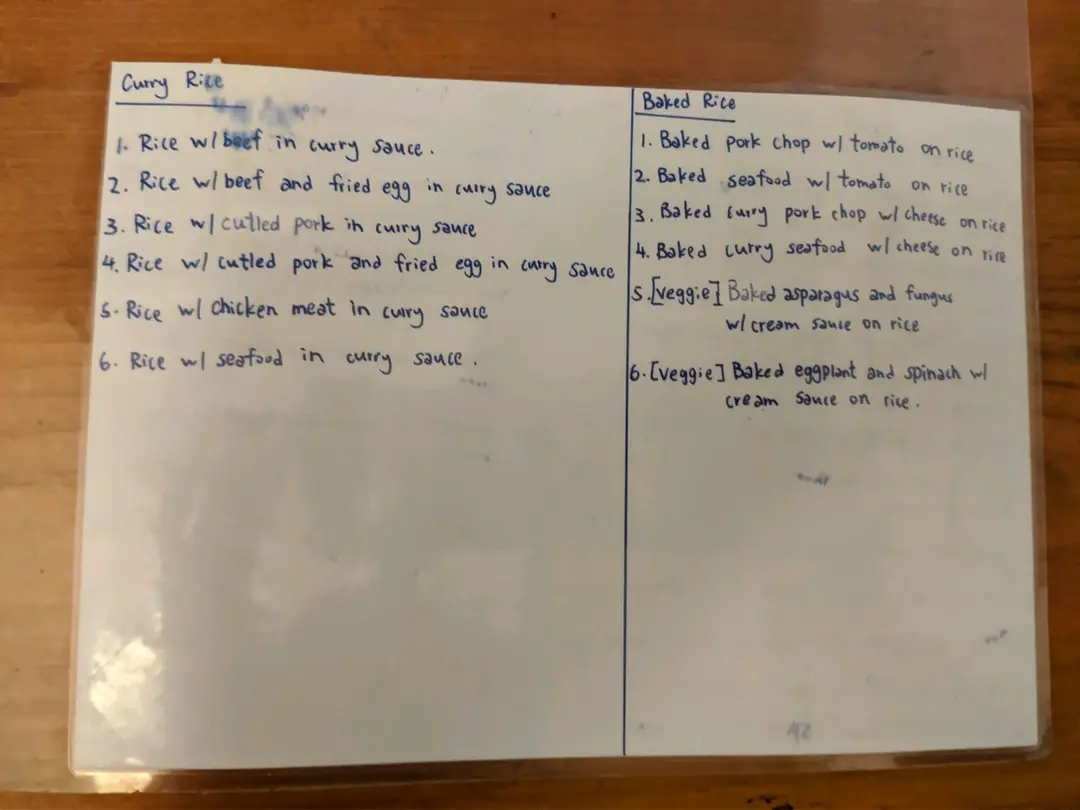 Curry Rice
1. Rice w/ beef in curry sauce.
2. Rice w/ beef and fried egg in curry sauce
3. Rice w/ cutled pork in curry sauce
4. Rice w/ cutled pork and fried egg in curry sauce
5. Rice w/ chicken meat in curry sauce
6. Rice w/ seafood in curry sauce.
Baked Rice
1. Baked pork chop w/ tomato on rice
2. Baked seafood w/ tomato on rice
3. Baked curry pork chop w/ cheese on rice
4. Baked curry seafood w/ cheese on rice
5. [veggie] Baked asparagus and fungus
w/ cream sauce on rice
6. [veggie] Baked eggplant and spinach w/
cream sauce on rice.